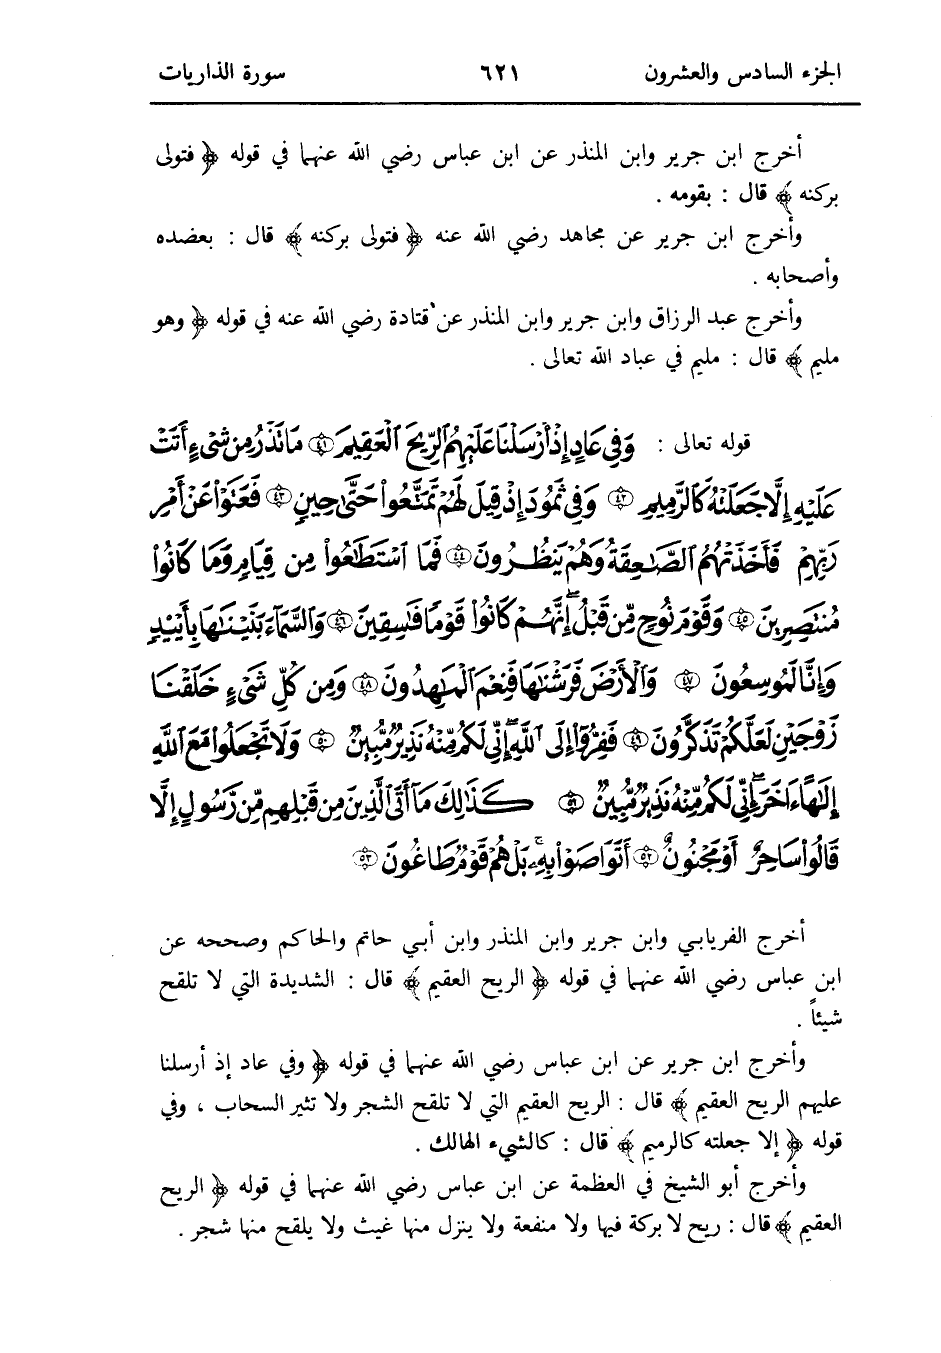 الجزء السادس والعشرون ٦٢١ سورة الذاريات
أخرج ابن جرير وابن المنذر عن ابن عباس رضي الله عنهما في قوله ﴿ فتولى
بركنه ﴾ قال : بقومه .
وأخرج ابن جرير عن مجاهد رضي الله عنه ﴿ فتولى بركنه ﴾ قال : بعضده
وأصحابه .
وأخرج عبد الرزاق وابن جرير وابن المنذر عن قتادة رضي الله عنه في قوله ﴿ وهو
مليم ﴾ قال : مليم في عباد الله تعالى .
قوله تعالى : وَفِي عَادٍ إِذْ أَرْسَلْنَا عَلَيْهِمُ الرِّيحَ الْعَقِيمَ ٤١ مَا تَذَرُ مِن شَيْءٍ أَتَتْ
عَلَيْهِ إِلَّا جَعَلَتْهُ كَالرَّمِيمِ ٤٢ وَفِي ثَمُودَ إِذْ قِيلَ لَهُمْ تَمَتَّعُوا حَتَّىٰ حِينٍ ٤٣ فَعَتَوْا عَنْ أَمْرِ
رَبِّهِمْ فَأَخَذَتْهُمُ الصَّاعِقَةُ وَهُمْ يَنظُرُونَ ٤٤ فَمَا اسْتَطَاعُوا مِن قِيَامٍ وَمَا كَانُوا
مُنتَصِرِينَ ٤٥ وَقَوْمَ نُوحٍ مِّن قَبْلُ إِنَّهُمْ كَانُوا قَوْمًا فَاسِقِينَ ٤٦ وَالسَّمَاءَ بَنَيْنَاهَا بِأَيْيْدٍ
وَإِنَّا لَمُوسِعُونَ ٤٧ وَالْأَرْضَ فَرَشْنَاهَا فَنِعْمَ الْمَاهِدُونَ ٤٨ وَمِن كُلِّ شَيْءٍ خَلَقْنَا
زَوْجَيْنِ لَعَلَّكُمْ تَذَكَّرُونَ ٤٩ فَفِرُّوا إِلَى اللَّهِ إِنِّي لَكُم مِّنْهُ نَذِيرٌ مُّبِينٌ ٥٠ وَلَا تَجْعَلُوا مَعَ اللَّهِ
إِلَٰهًا ءَاخَرَ إِنِّي لَكُم مِّنْهُ نَذِيرٌ مُّبِينٌ ٥١ كَذَٰلِكَ مَا أَتَى الَّذِينَ مِن قَبْلِهِم مِّن رَّسُولٍ إِلَّا
قَالُوا سَاحِرٌ أَوْ مَجْنُونٌ ٥٢ أَتَوَاصَوْا بِهِ بَلْ هُمْ قَوْمٌ طَاغُونَ ٥٣
أخرج الفريابي وابن جرير وابن المنذر وابن أبي حاتم والحاكم وصححه عن
ابن عباس رضي الله عنهما في قوله ﴿ الريح العقيم ﴾ قال : الشديدة التي لا تلقح
شيئاً .
وأخرج ابن جرير عن ابن عباس رضي الله عنهما في قوله ﴿ وفي عاد إذ أرسلنا
عليهم الريح العقيم ﴾ قال : الريح العقيم التي لا تلقح الشجر ولا تثير السحاب ، وفي
قوله ﴿ إلا جعلته كالرميم ﴾ قال : كالشيء الهالك .
وأخرج أبو الشيخ في العظمة عن ابن عباس رضي الله عنهما في قوله ﴿ الريح
العقيم ﴾ قال : ريح لا بركة فيها ولا منفعة ولا ينزل منها غيث ولا يلقح منها شجر .